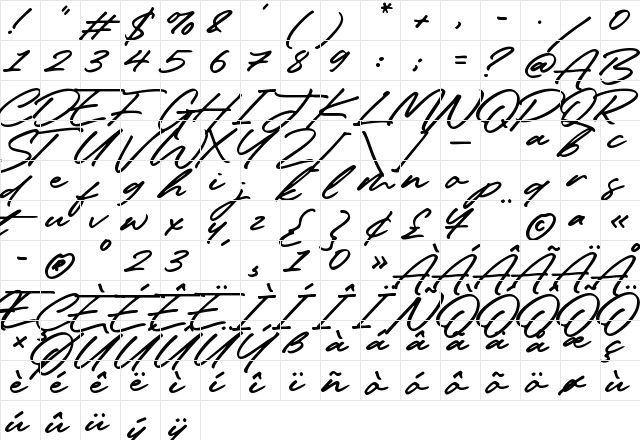 ! " # $ % & ' ( ) * + , - . / 0
1 2 3 4 5 6 7 8 9 : ; = ? @ A B
C D E F G H I J K L M N O P Q R
S T U V W X Y Z [ \ ] — a b c
d e f g h i j k l m n o p q r s
t u v w x y z { } ¢ £ ¥ ¨ © ª «
- ® ° 2 3 ´ ¸ 1 0 » À Á Â Ã Ä Å
Æ Ç È É Ê Ë Ì Í Î Ï Ñ Ò Ó Ô Õ Ö
× Ø Ù Ú Û Ü Ý ß à á â ã ä å æ ç
è é ê ë ì í î ï ñ ò ó ô õ ö ø ù
ú û ü ý ÿ